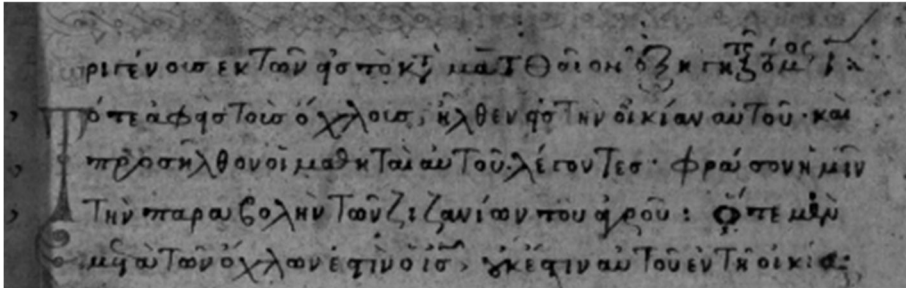 ριγένους ἐκ τῶν εἰς τὸ κτ ματθαῖον ἐξηγητ τόμος
Τότε ἀφεὶς τοὺς ὄχλους, ἦλθεν εἰς τὴν οἰκίαν αὐτοῦ· καὶ
προσῆλθον οἱ μαθηταὶ αὐτοῦ λέγοντες· φράσον ἡμῖν
τὴν παραβολὴν τῶν ζιζανίων τοῦ ἀγροῦ: Ὅτε μὲν
μετὰ τῶν ὄχλων ἐστὶν ὁ ἰς, οὐκ ἔστιν αὐτοῦ ἐν τῇ οἰκία: